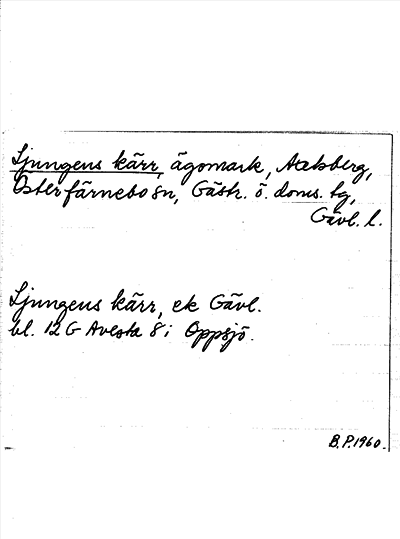 Ljungens kärr, ägomark, Axksberg,
Österfärnebo sn, Gästr. ö. doms. tg,
Gävl. l.
Ljungens kärr, ek Gävl.
bl. 12 G Avesta 8 i Oppsjö.
B.P. 1960.